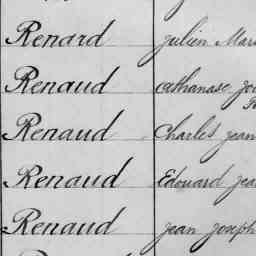 Renard Julien
Renaud Athanase
Renaud Charles Jean
Renaud Edouard
Renaud Jean Joseph